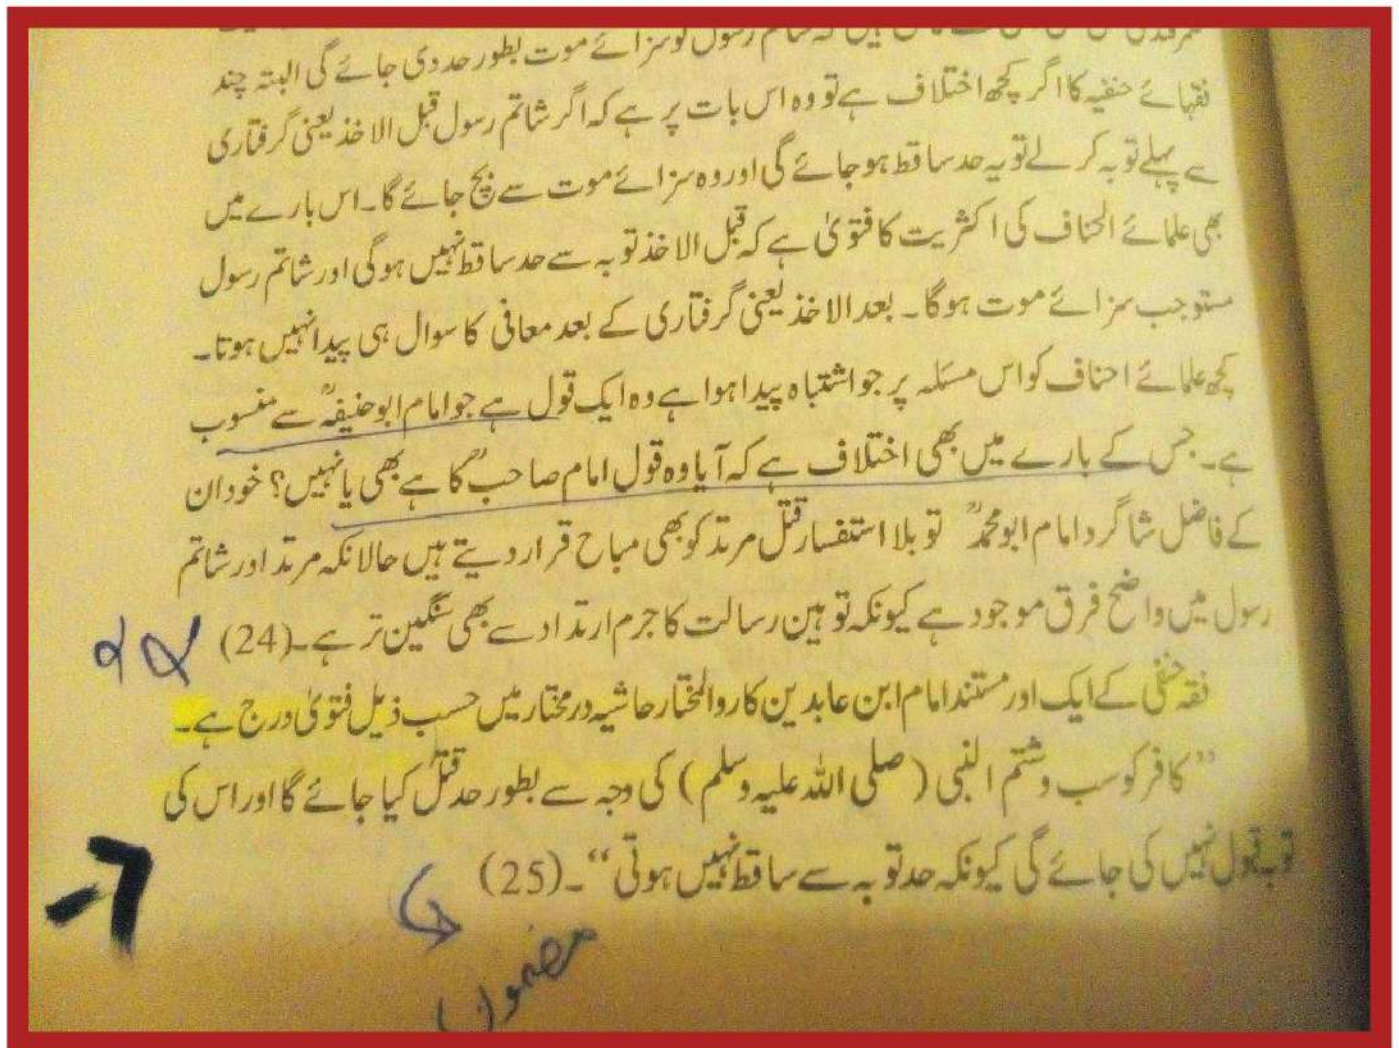 رسول کو سزائے موت بطور حد دی جائے گی البتہ چند
فقہائے حنفیہ کا اگر کچھ اختلاف ہے تو وہ اس بات پر ہے کہ اگر شاتم رسول قبل الاخذ یعنی گرفتاری
سے پہلے توبہ کر لے تو یہ حد ساقط ہو جائے گی اور وہ سزائے موت سے بچ جائے گا۔ اس بارے میں
بھی علمائے احناف کی اکثریت کا فتویٰ ہے کہ قبل الاخذ توبہ سے حد ساقط نہیں ہوگی اور شاتم رسول
مستوجب سزائے موت ہوگا۔ بعد الاخذ یعنی گرفتاری کے بعد معافی کا سوال ہی پیدا نہیں ہوتا۔
کچھ علمائے احناف کو اس مسئلہ پر جو اشتباہ پیدا ہوا ہے وہ ایک قول ہے جو امام ابو حنیفہؒ سے منسوب
ہے۔ جس کے بارے میں بھی اختلاف ہے کہ آیا وہ قول امام صاحبؒ کا ہے بھی یا نہیں؟ خود ان
کے فاضل شاگرد امام ابو محمدؒ تو بلا استفسار قتل مرتد کو بھی مباح قرار دیتے ہیں حالانکہ مرتد اور شاتم
رسول میں واضح فرق موجود ہے کیونکہ توہین رسالت کا جرم ارتداد سے بھی سنگین تر ہے۔ (24)
فقہ حنفی کے ایک اور مستند امام ابن عابدین کا ردالمختار حاشیہ درمختار میں حسب ذیل فتویٰ درج ہے۔
”کافر کو سب و شتم النبی (صلی اللہ علیہ وسلم) کی وجہ سے بطور حد قتل کیا جائے گا اور اس کی
توبہ قبول نہیں کی جائے گی کیونکہ حد توبہ سے ساقط نہیں ہوتی“۔ (25)